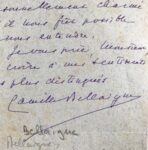 personnellement charmé
il vous fût possible
nous entendre.
Je vous prie, Monsieur
croire à mes sentiments
plus distingués
Camille Bellaigue
Bellaigue
Bellaigue